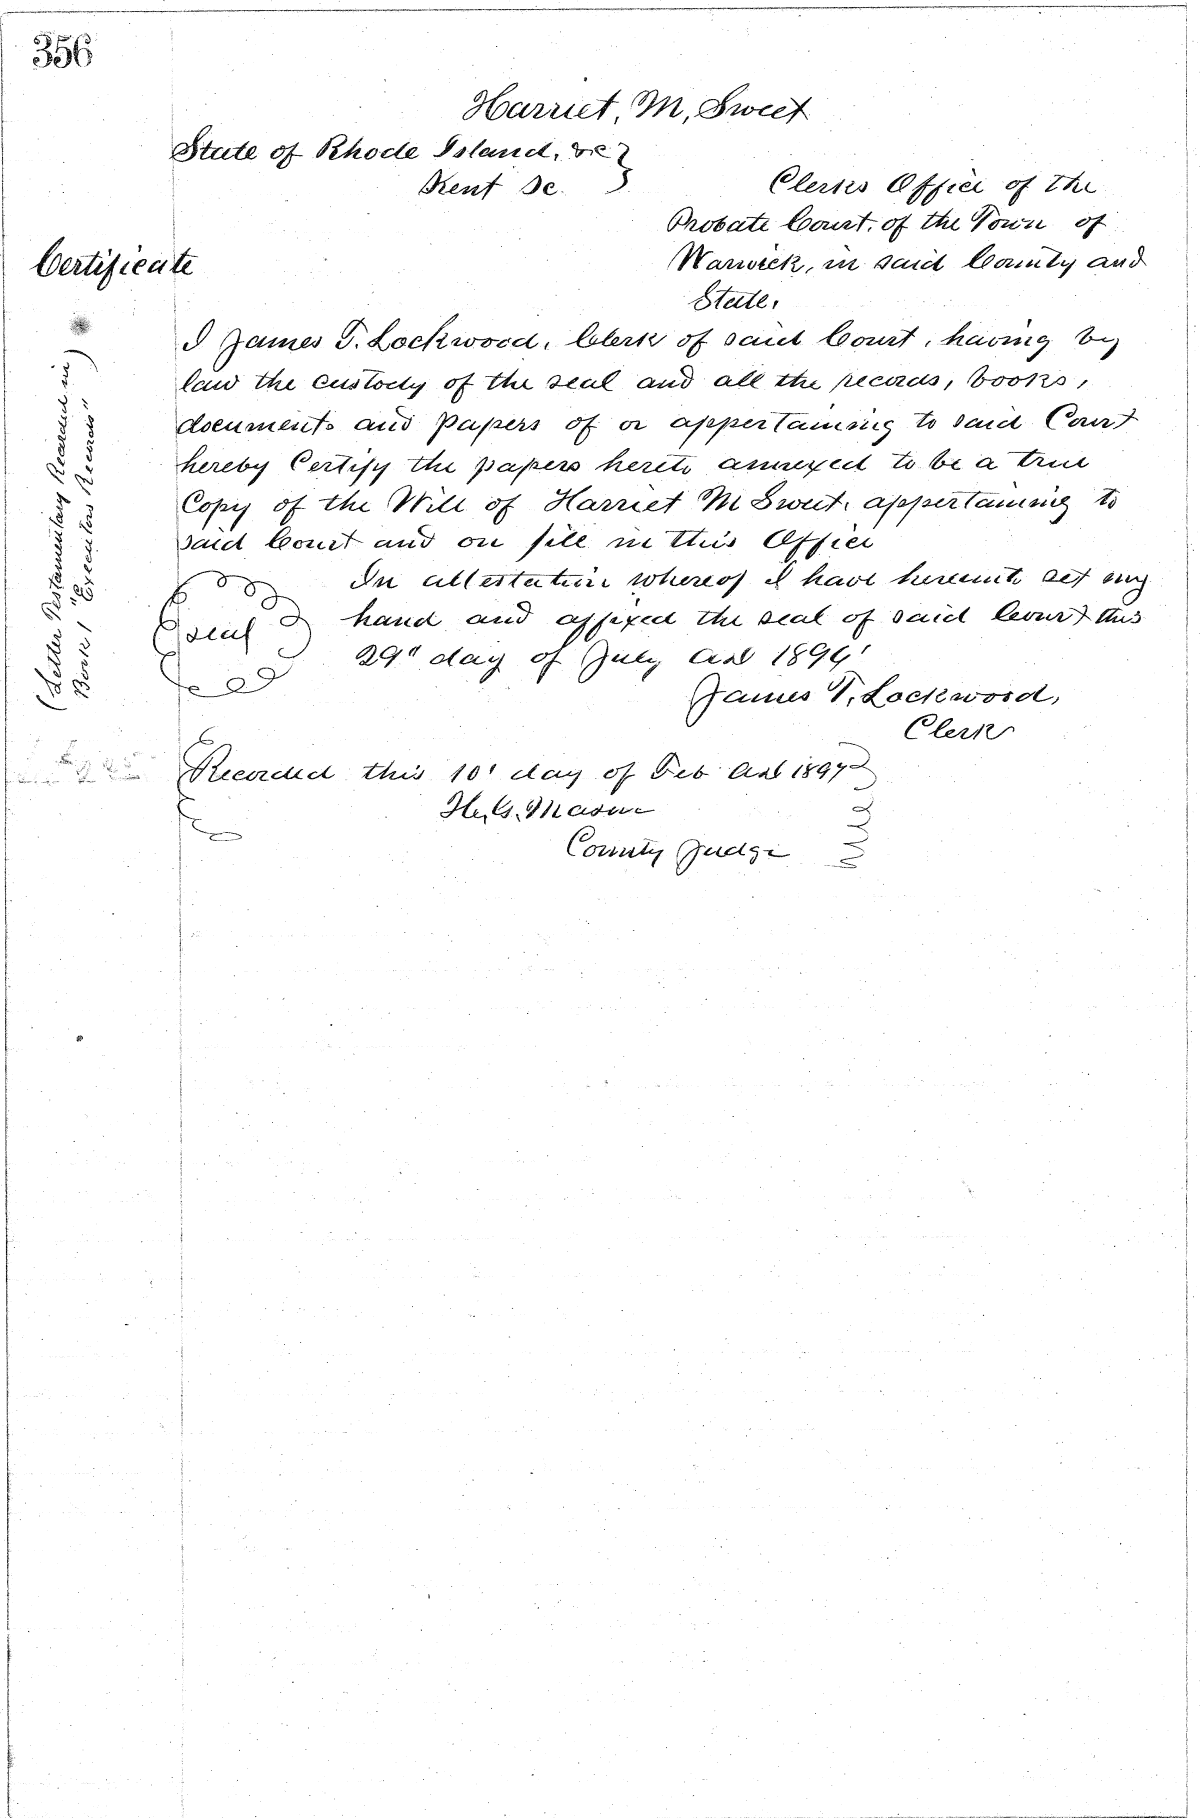 356
Harriet, M, Sweet
State of Rhode Island, &c }
Kent Sc. }
Clerks Office of the
Probate Court, of the Town of
Warwick, in said County and
State,
Certificate
I James T. Lockwood, Clerk of said Court, having by
law the custody of the seal and all the records, books,
documents and papers of or appertaining to said Court
hereby Certify the papers hereto annexed to be a true
Copy of the Will of Harriet M Sweet, appertaining to
said Court and on file in this Office
In attestation whereof I have hereunto set my
hand and affixed the seal of said Court this
seal
29" day of July AD
James T, Lockwood,
Clerk
Recorded this 10' day of Feb AD 1897
Mason
County Judge
(Letter Testamentary Recorded in)
Book 1 "Executors Records"